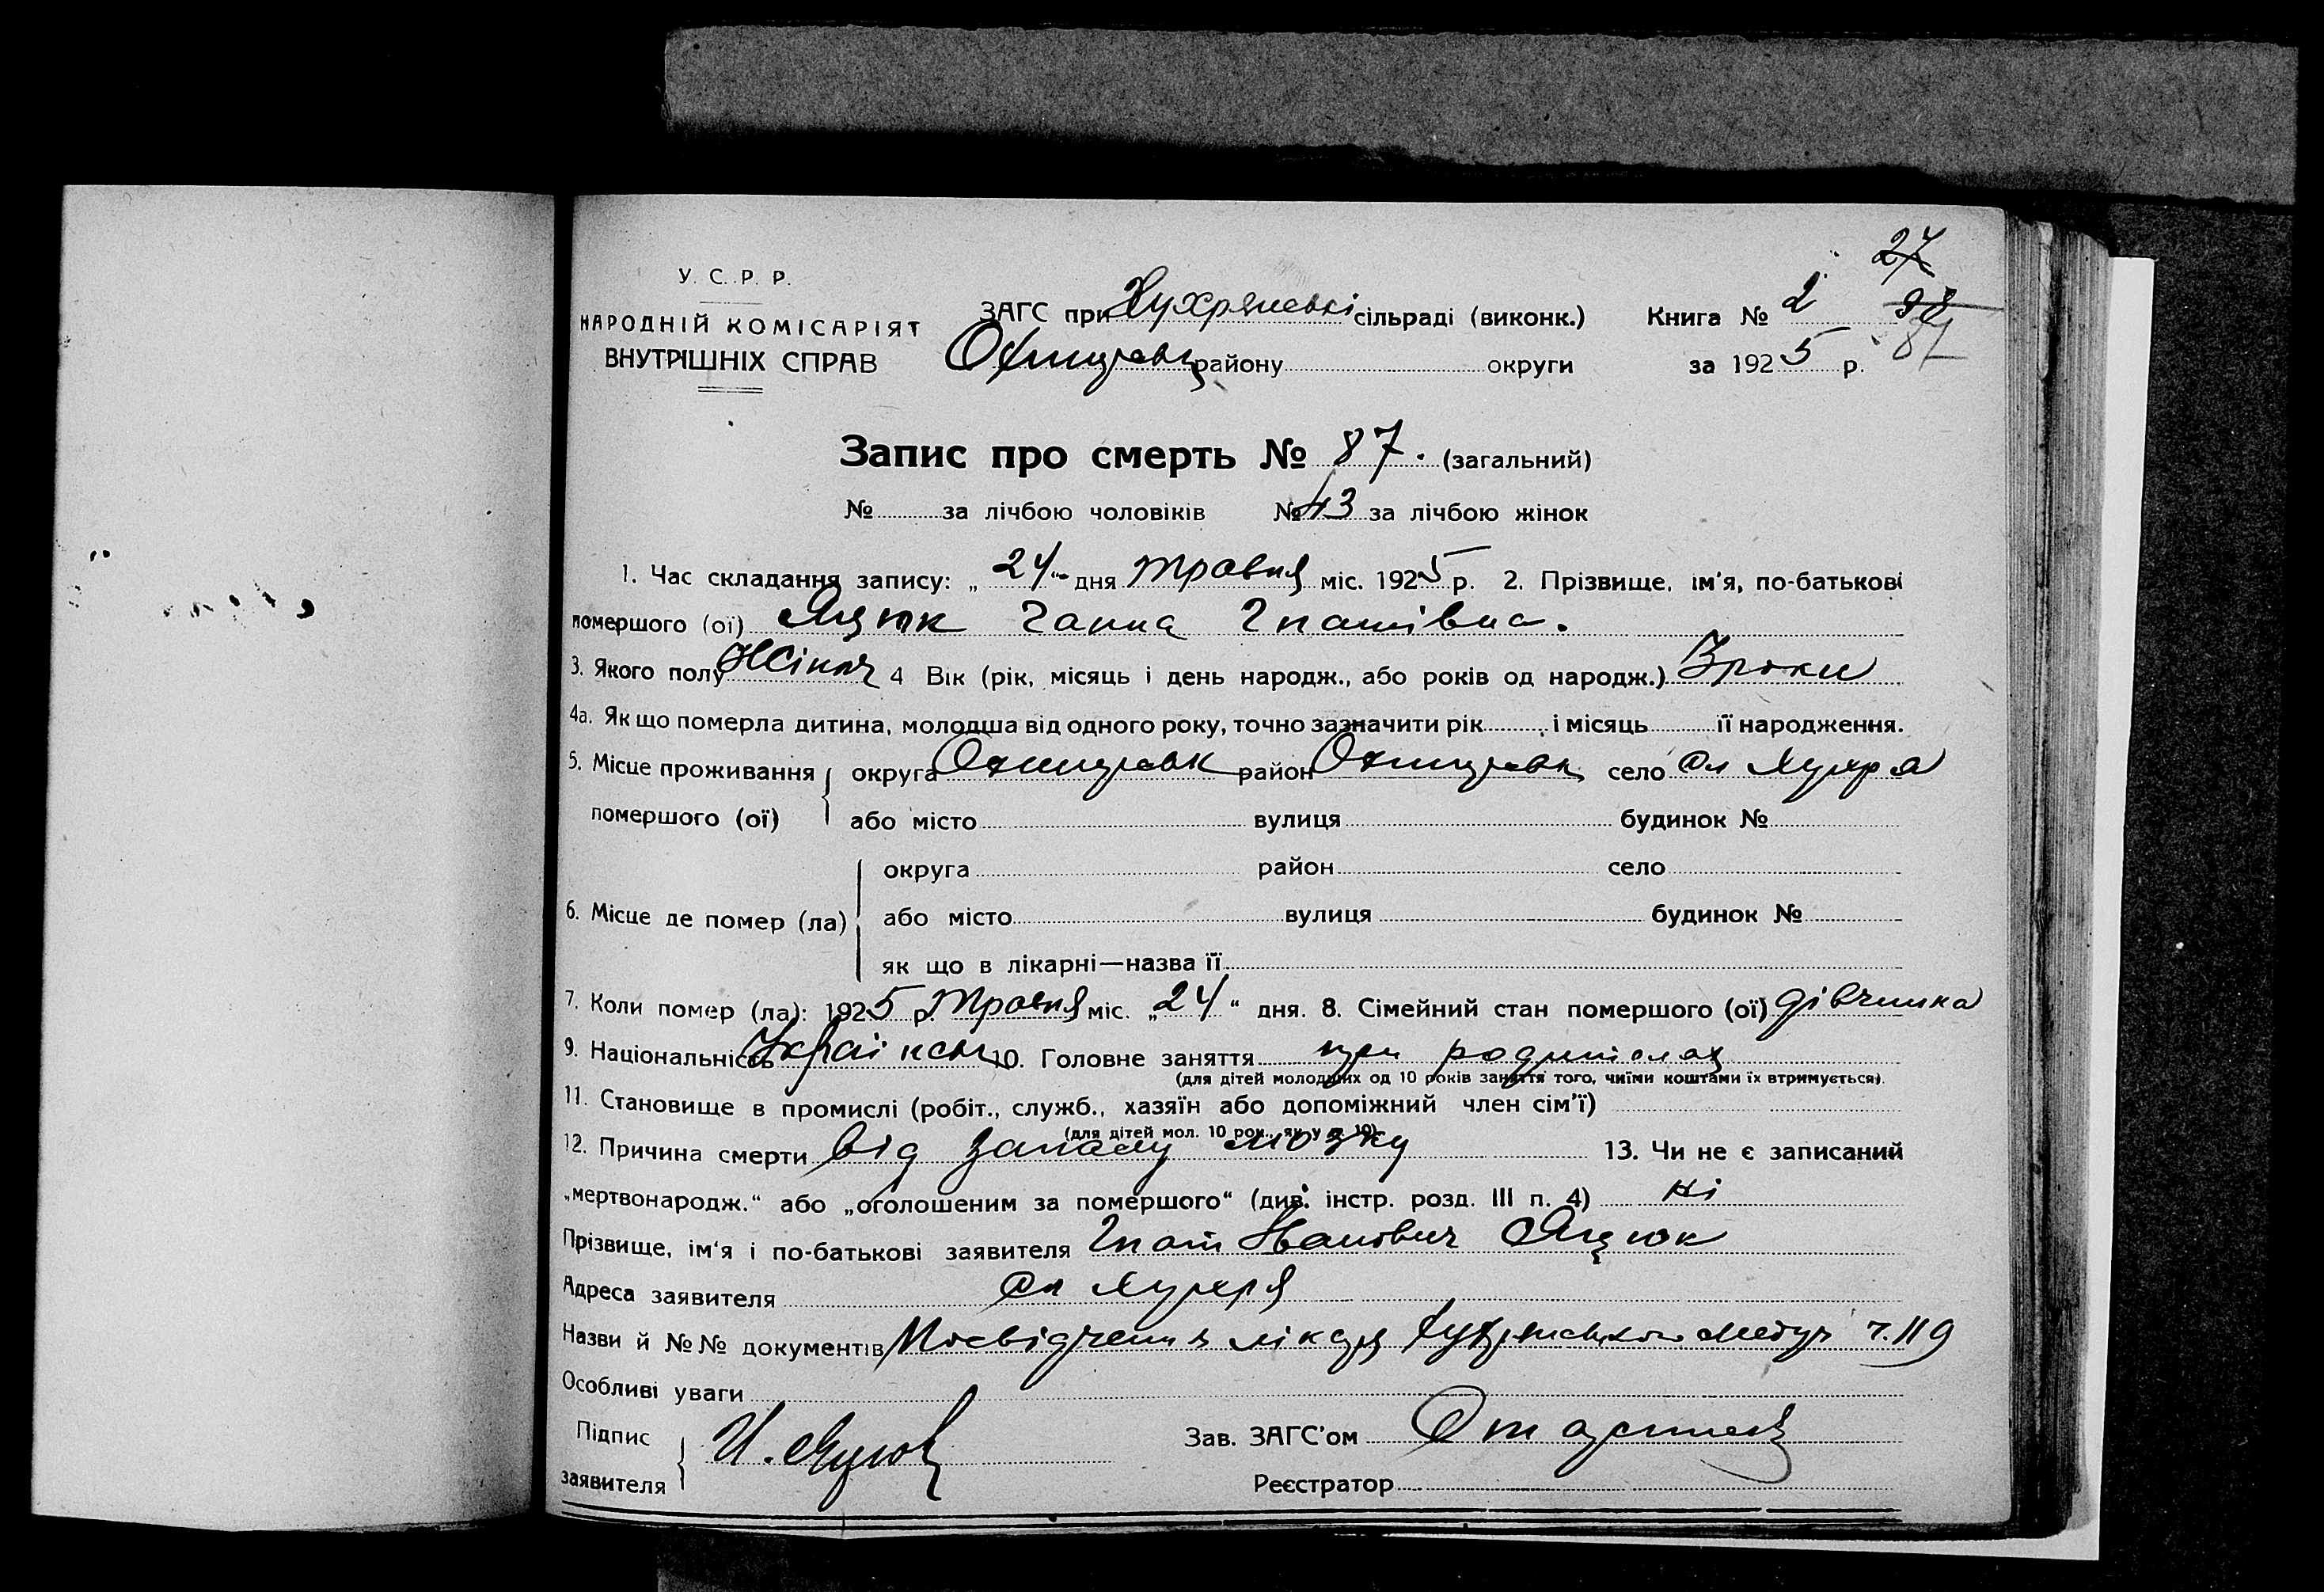 27
У. С. Р. Р.
НАРОДНІЙ КОМІСАРІЯТ
ВНУТРІШНІХ СПРАВ
ЗАГС при Хухрянські сільраді (виконк.) Книга № 2
району округи за 1925 р.
Запис про смерть № 87. (загальний)
№ за лічбою чоловіків № 43 за лічбою жінок
1. Час складання запису: „ 24 " дня травня міс. 1925 р. 2. Прізвище, ім'я, по-батькові
помершого (ої) Яцюк Ганна Гнатівна.
3. Якого полу Жіноч 4 Вік (рік, місяць і день народж., або років од народж.) 3 роки
4а. Як що померла дитина, молодша від одного року, точно зазначити рік і місяць її народження.
5. Місце проживання округа Охтирськ район Охтирськ село сл Хухра
помершого (ої) або місто вулиця будинок №
округа район село
6. Місце де помер (ла) або місто вулиця будинок №
як що в лікарні—назва її
7. Коли помер (ла): 1925 р. Травня міс. „ 24 " дня. 8. Сімейний стан помершого (ої) дівчинка
9. Національність Українськ 10. Головне заняття при родителях
(для дітей молодших од 10 років заняття того, чиїми коштами їх втримується).
11. Становище в промислі (робіт., служб., хазяїн або допоміжний член сім'ї)
(для дітей мол. 10 рок., як у п. 10)
12. Причина смерти від запалу мозку 13. Чи не є записаний
„мертвонародж." або „оголошеним за помершого" (див. інстр. розд. III п. 4) ні
Прізвище, ім'я і по-батькові заявителя Гнат Іванович Яцюк
Адреса заявителя сл Хухря
Назви й №№ документів Посвідчення лікаря ч. 119
Особливі уваги
Підпис
заявителя И. Яцюк
Зав. ЗАГС'ом
Реєстратор